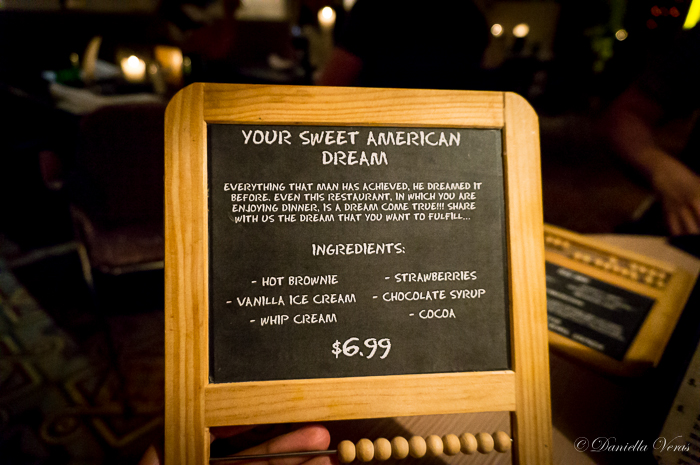 YOUR SWEET AMERICAN
DREAM
EVERYTHING THAT MAN HAS ACHIEVED, HE DREAMED IT
BEFORE. EVEN THIS RESTAURANT, IN WHICH YOU ARE
ENJOYING DINNER, IS A DREAM COME TRUE!!! SHARE
WITH US THE DREAM THAT YOU WANT TO FULFILL...
INGREDIENTS:
- HOT BROWNIE
- VANILLA ICE CREAM
- WHIP CREAM
- STRAWBERRIES
- CHOCOLATE SYRUP
- COCOA
$6.99
© Daniella Veras